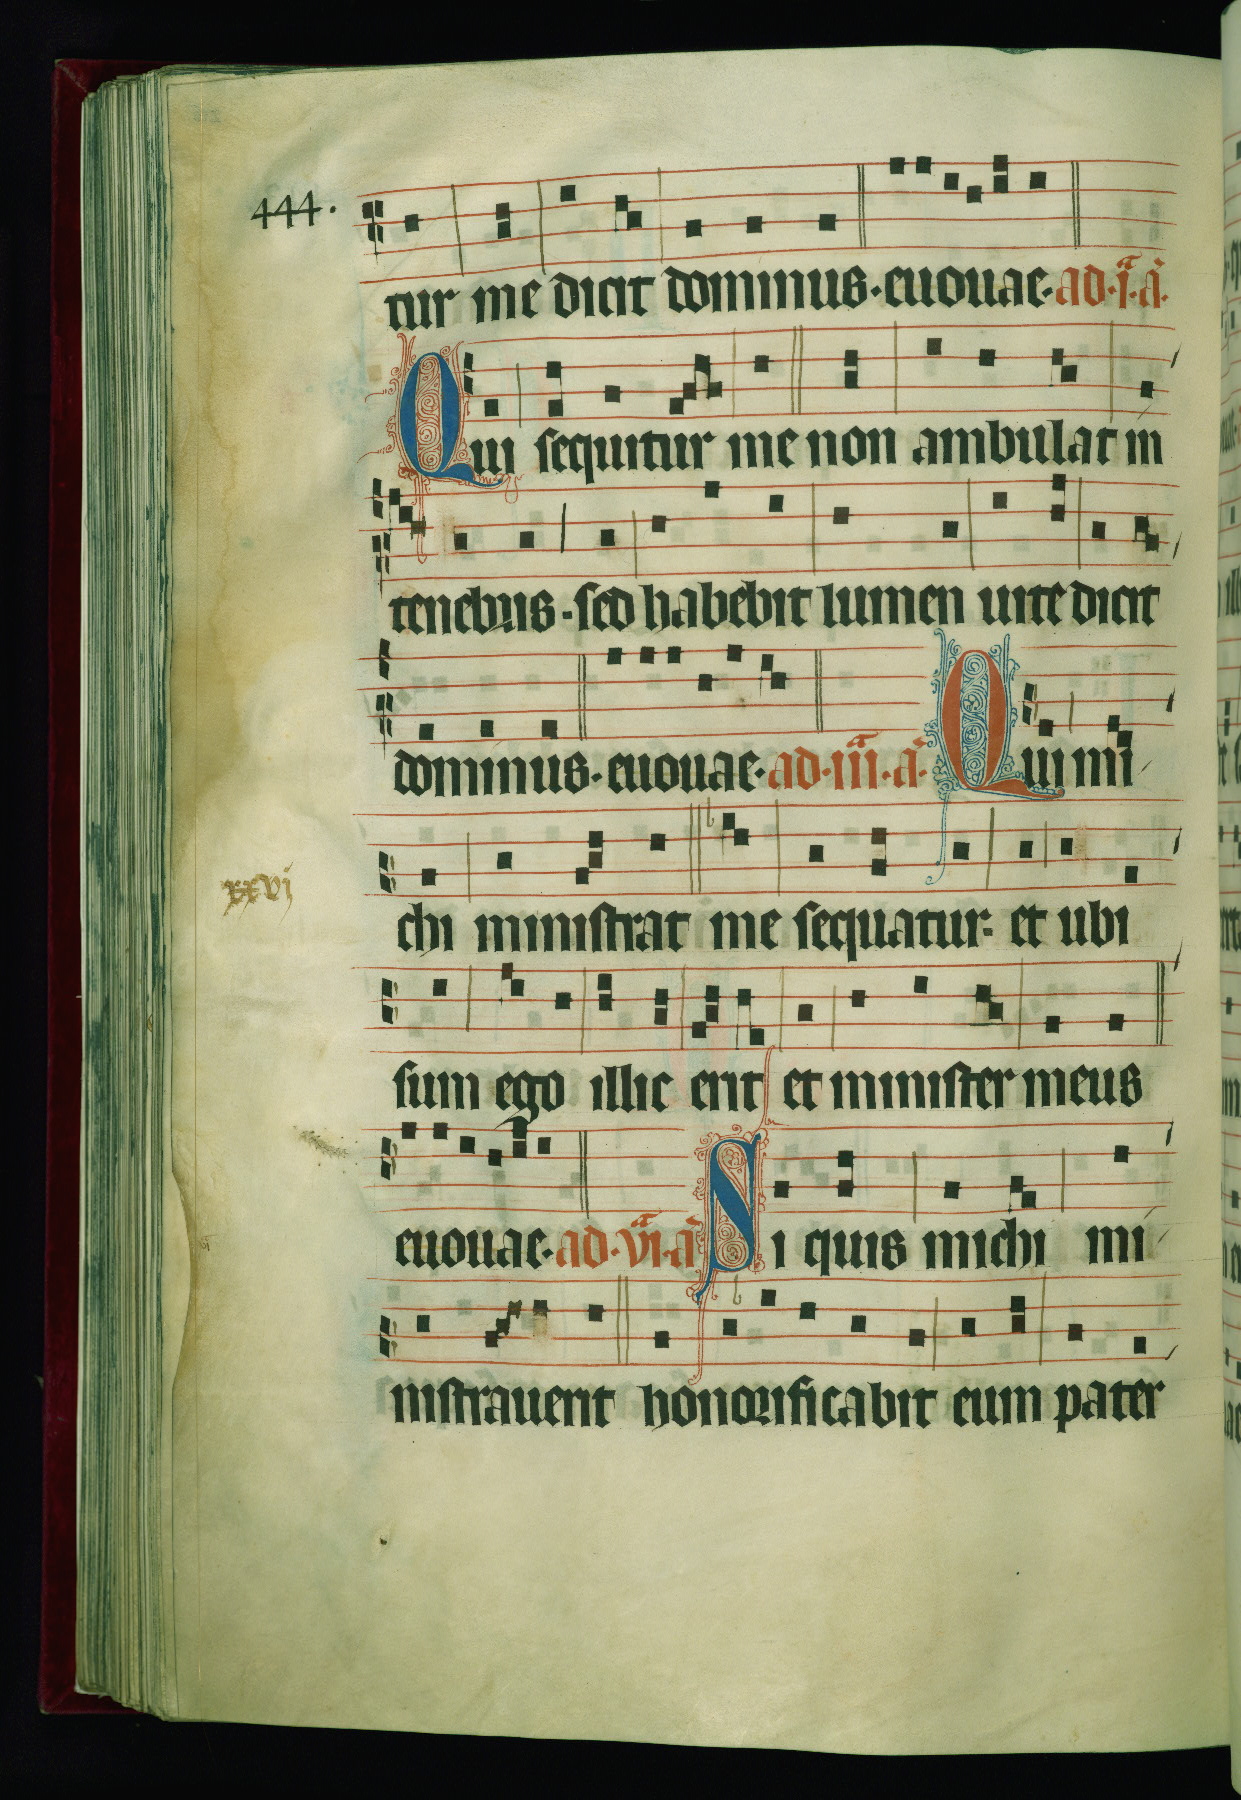 444.
tur me dicit dominus. euouae. ad. i.a a.
Qui sequitur me non ambulat in
tenebris. sed habebit lumen uite dicit
dominus. euouae. ad. iii.a a. Qui mi
chi ministrat me sequatur: et ubi
xxvi
sum ego illic erit et minister meus
euouae. ad. vi.a a Si quis michi mi
nistrauerit honorificabit eum pater